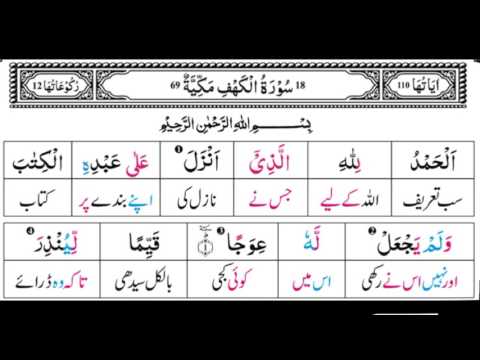 اٰيَاتُهَا 110 18 سُوْرَةُ الْكَهْفِ مَكِّيَّةٌ 69 رُكُوْعَاتُهَا 12
بِسْمِ اللهِ الرَّحْمٰنِ الرَّحِيْمِ
اَلْحَمْدُ لِلّٰهِ الَّذِيْۤ اَنْزَلَ ① عَلٰى عَبْدِهِ الْكِتٰبَ
سب تعریف اللہ کے لیے جس نے نازل کی اپنے بندے پر کتاب
وَلَمْ يَجْعَلْ ② لَّهٗ عِوَجًا ③ ۝۱ قَيِّمًا لِّيُنْذِرَ ④
اور نہیں اس نے رکھی اس میں کوئی کجی بالکل سیدھی تاکہ وہ ڈرائے